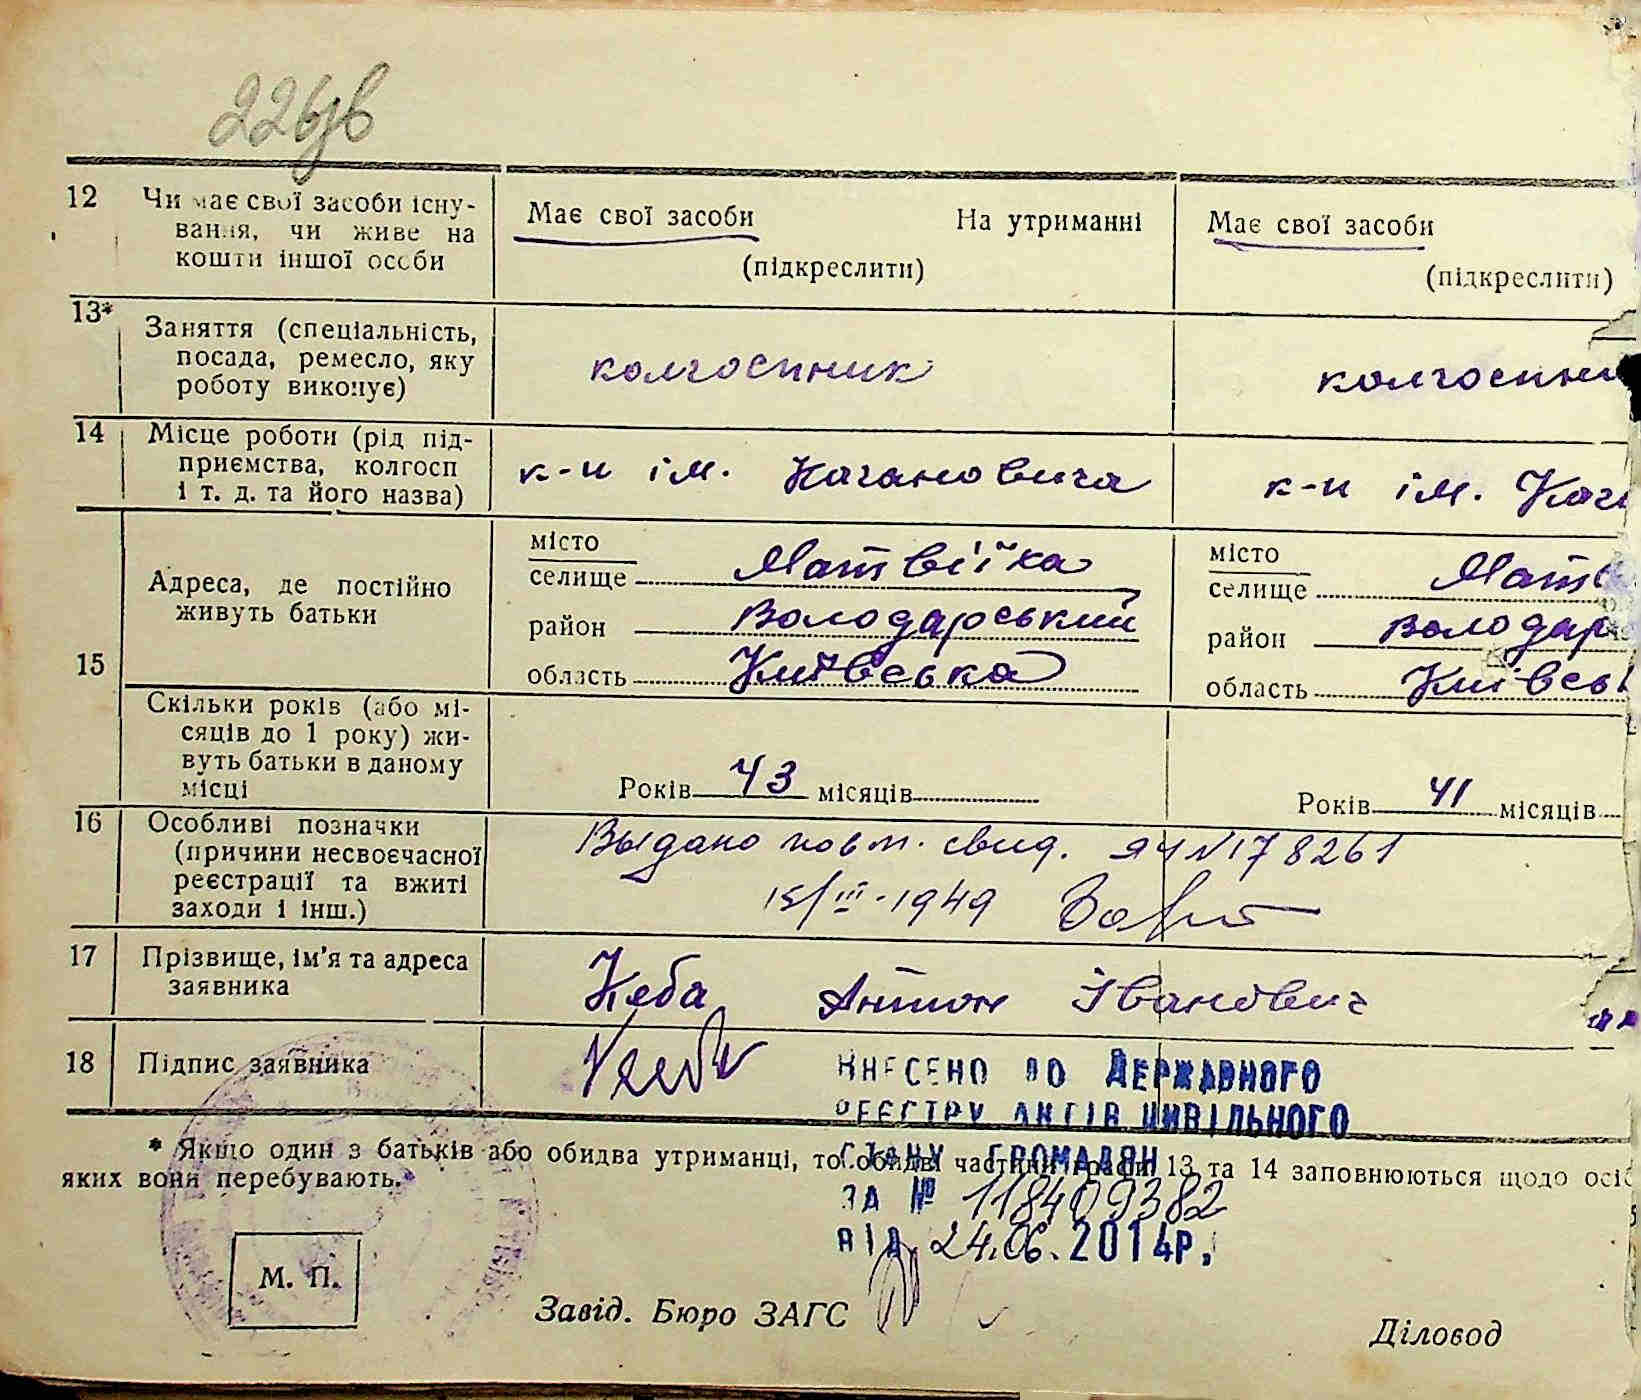 226зв
12 Чи має свої засоби існу-
вання, чи живе на
кошти іншої особи
Має свої засоби На утриманні
(підкреслити)
Має свої засоби
(підкреслити)
13* Заняття (спеціальність,
посада, ремесло, яку
роботу виконує)
колгоспник
колгоспни
14 Місце роботи (рід під-
приємства, колгосп
і т. д. та його назва)
к-п ім. Кагановича
к-п ім. Кага
15 Адреса, де постійно
живуть батьки
місто
селище Матвіїха
район Володарський
область Київська
місто
селище Матв
район Володар
область Київсь
Скільки років (або мі-
сяців до 1 року) жи-
вуть батьки в даному
місці
Років 43 місяців
Років 41 місяців
16 Особливі позначки
(причини несвоєчасної
реєстрації та вжиті
заходи і інш.)
Выдано повт. свид. ЯЧ №178261
15/III-1949
17 Прізвище, ім'я та адреса
заявника
Кеба Антон Іванович
18 Підпис заявника
ВНЕСЕНО ДО ДЕРЖАВНОГО
РЕЄСТРУ АКТІВ ЦИВІЛЬНОГО
СТАНУ ГРОМАДЯН
ЗА № 118409382
ВІД 24.06.2014Р.
* Якщо один з батьків або обидва утриманці, то обидві частини граф 13 та 14 заповнюються щодо осіб
яких вони перебувають.
М. П.
Завід. Бюро ЗАГС
Діловод